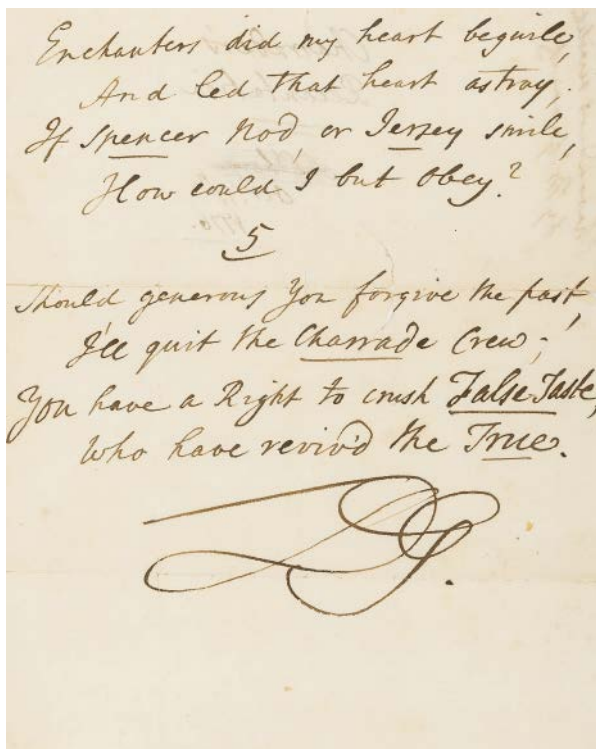 Enchanters did my heart beguile,
And led that heart astray,
If Spencer Nod, or Jersey smile,
How could I but obey?
5
Should generous You forgive the past,
I'll quit the Charrade Crew;
You have a Right to crush False Taste,
Who have reviv'd the True.
DG.